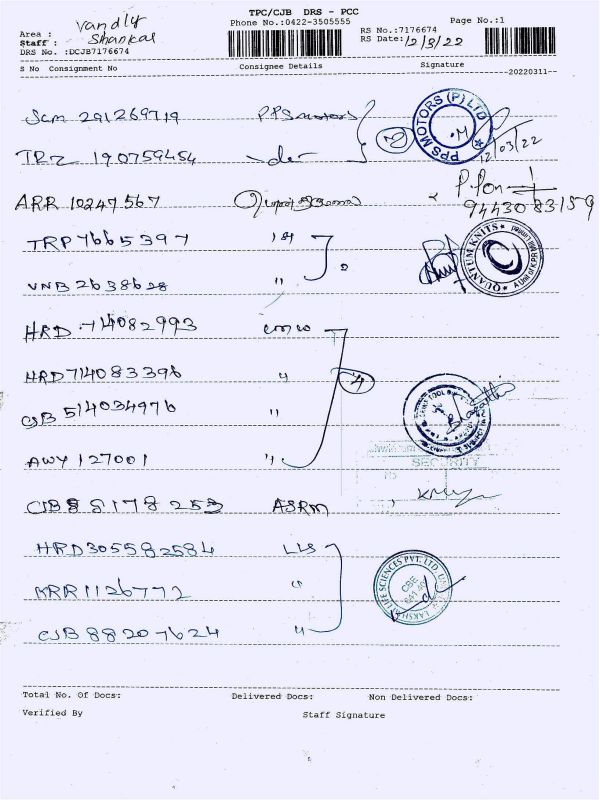 TPC/CJB DRS - PCC
Phone No.:0422-3505555 Page No.:1
Area : Vandly
Staff : Shankar
RS No.:7176674
RS Date: 12/3/22
DRS No. :DCJB7176674
S No Consignment No Consignee Details Signature
--20220311--
SCM 291269719 PPS motors
PPS MOTORS (P) LTD
TRZ 190759454
12/03/22
ARR 10247567
94430 83159
TRP 7665397
QUANTUM KNITS
VNB 2638628 "
HRD 714082993
HRD 714083396 "
CJB 514034976 "
AWY 127001 "
SECURITY
CJB 88178253 ASRM
HRD305582584 LLS
KRR1126772 "
LIFE SCIENCES PVT. LTD.
CBE
CJB 88207624 "
Total No. Of Docs: Delivered Docs: Non Delivered Docs:
Verified By Staff Signature